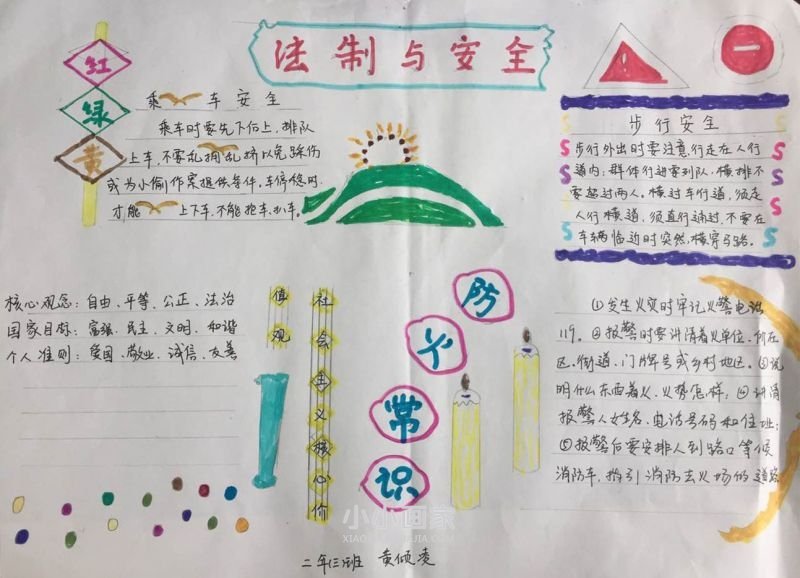 法制与安全
红
绿
黄
乘 车安全
乘车时要先下后上，排队
上车，不要乱拥乱挤以免踩伤
或为小偷作案提供条件，车停稳时，
才能 上下车，不能挖车，扒车。
步行安全
步行外出时要注意，行走在人行
道内，群体行进要列队，横排不
要超过两人。横过车行道，须走
人行横道，须直行通过，不要在
车辆临近时突然横穿马路。
核心观念：自由、平等、公正、法治
国家目标：富强、民主、文明、和谐
个人准则：爱国、敬业、诚信、友善
社会主义核心价
值观
防火常识
①发生火灾时牢记火警电话
119。②报警时要讲清着火单位、所在
区、街道、门牌号或乡村地区。③说
明什么东西着火、火势怎样；④讲清
报警人姓名、电话号码和住址；
⑤报警后要安排人到路口等候
消防车，指引消防去火场的道路
小小画家
二年(三)班 黄倾凌